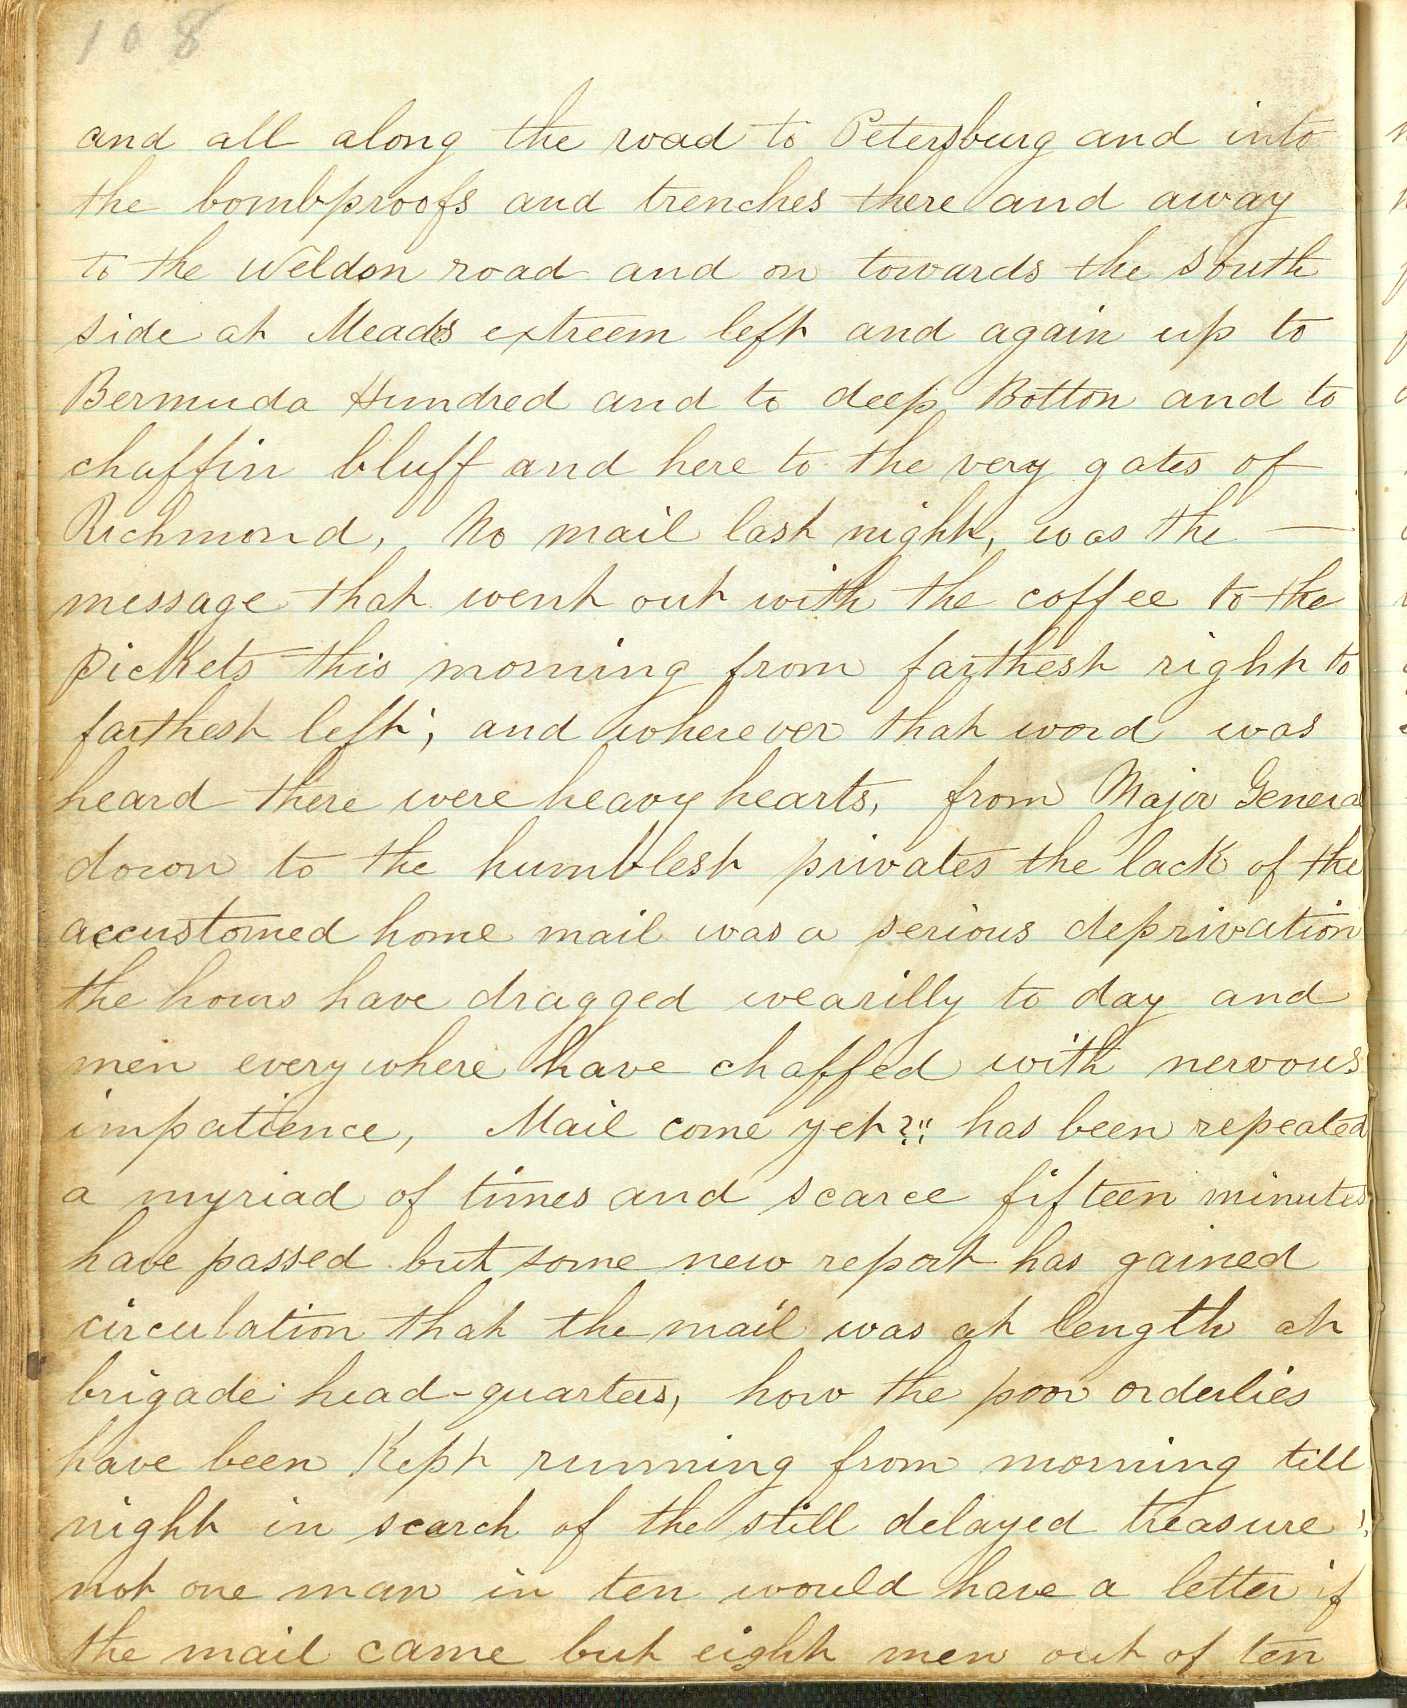 108
and all along the road to Petersburg and into
the bombproofs and trenches there and away
to the Weldon road and on towards the South
side at Meads extreem left and again up to
Bermuda Hundred and to deep Botton and to
chaffin bluff and here to the very gates of
Richmond, No mail last night, was the —
message that went out with the coffee to the
pickets this morning from farthest right to
farthest left; and wherever that word was
heard there were heavy hearts, from Major General
down to the humblest privates the lack of the
accustomed home mail was a serious deprivation
the hours have dragged wearilly to day and
men everywhere have chaffed with nervous
impatience, Mail come yet?!! has been repeated
a myriad of times and scarce fifteen minutes
have passed but some new report has gained
circulation that the mail was at length at
brigade head-quarters, how the poor orderlies
have been Kept running from morning till
night in search of the still delayed treasure!
not one man in ten would have a letter if
the mail came but eight men out of ten